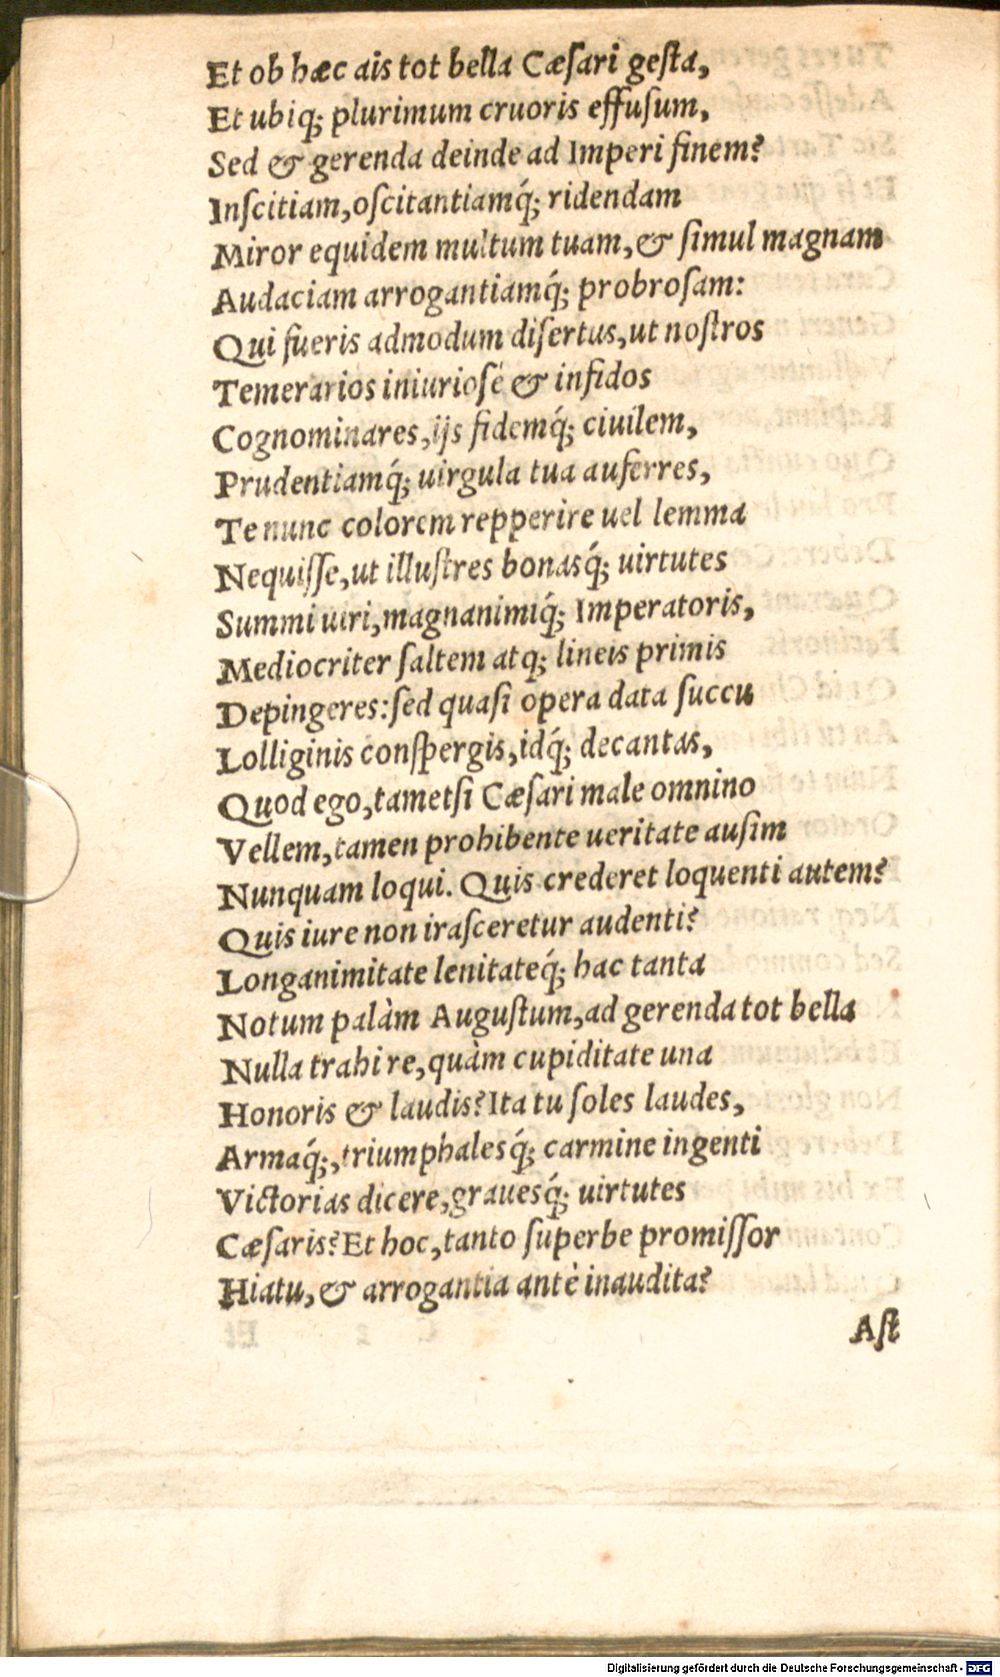 Et ob hæc ais tot bella Cæsari gesta,
Et ubiq; plurimum cruoris effusum,
Sed & gerenda deinde ad Imperi finem?
Inscitiam, oscitantiamq́; ridendam
Miror equidem multum tuam, & simul magnam
Audaciam arrogantiamq́; probrosam:
Qui fueris admodum disertus, ut nostros
Temerarios iniuriosè & infidos
Cognominares, ijs fidemq́; ciuilem,
Prudentiamq́; uirgula tua auferres,
Te nunc colorem repperire uel lemma
Nequisse, ut illustres bonasq́; uirtutes
Summi uiri, magnanimiq́; Imperatoris,
Mediocriter saltem atq; lineis primis
Depingeres: sed quasi opera data succu
Lolliginis conspergis, idq́; decantas,
Quod ego, tametsi Cæsari male omnino
Vellem, tamen prohibente ueritate ausim
Nunquam loqui. Quis crederet loquenti autem?
Quis iure non irasceretur audenti?
Longanimitate lenitateq́; hac tanta
Notum palàm Augustum, ad gerenda tot bella
Nulla trahi re, quàm cupiditate una
Honoris & laudis? Ita tu soles laudes,
Armaq́;, triumphalesq́; carmine ingenti
Victorias dicere, grauesq́; uirtutes
Cæsaris? Et hoc, tanto superbe promissor
Hiatu, & arrogantia antè inaudita?
Ast
Digitalisierung gefördert durch die Deutsche Forschungsgemeinschaft - DFG